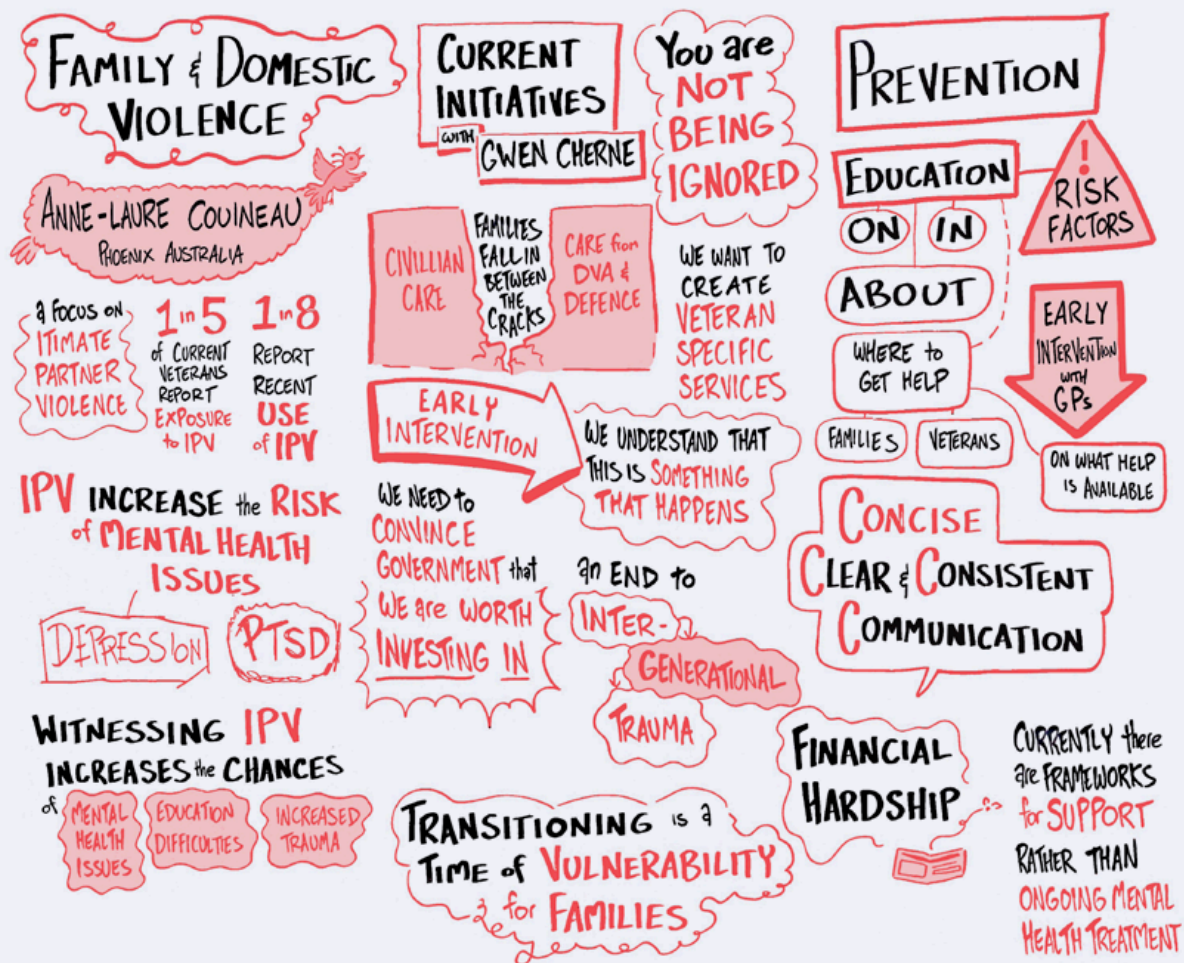 FAMILY & DOMESTIC
VIOLENCE
ANNE-LAURE COUINEAU
PHOENIX AUSTRALIA
a FOCUS ON
ITIMATE
PARTNER
VIOLENCE
1 in 5
of CURRENT
VETERANS
REPORT
EXPOSURE
to IPV
1 in 8
REPORT
RECENT
USE
of IPV
IPV INCREASE the RISK
of MENTAL HEALTH
ISSUES
DEPRESSION
PTSD
WITNESSING IPV
INCREASES the CHANCES
of
MENTAL
HEALTH
ISSUES
EDUCATION
DIFFICULTIES
INCREASED
TRAUMA
CURRENT
INITIATIVES
WITH
GWEN CHERNE
You are
NOT
BEING
IGNORED
CIVILLIAN
CARE
FAMILIES
FALL IN
BETWEEN
THE
CRACKS
CARE from
DVA &
DEFENCE
WE WANT TO
CREATE
VETERAN
SPECIFIC
SERVICES
EARLY
INTERVENTION
WE UNDERSTAND THAT
THIS IS SOMETHING
THAT HAPPENS
WE NEED to
CONVINCE
GOVERNMENT that
WE are WORTH
INVESTING IN
an END to
INTER-
GENERATIONAL
TRAUMA
TRANSITIONING is a
TIME of VULNERABILITY
for FAMILIES
PREVENTION
EDUCATION
ON
IN
ABOUT
!
RISK
FACTORS
WHERE to
GET HELP
FAMILIES
VETERANS
EARLY
INTERVENTION
WITH
GPs
ON WHAT HELP
IS AVAILABLE
CONCISE
CLEAR & CONSISTENT
COMMUNICATION
FINANCIAL
HARDSHIP
CURRENTLY there
are FRAMEWORKS
for SUPPORT
RATHER THAN
ONGOING MENTAL
HEALTH TREATMENT